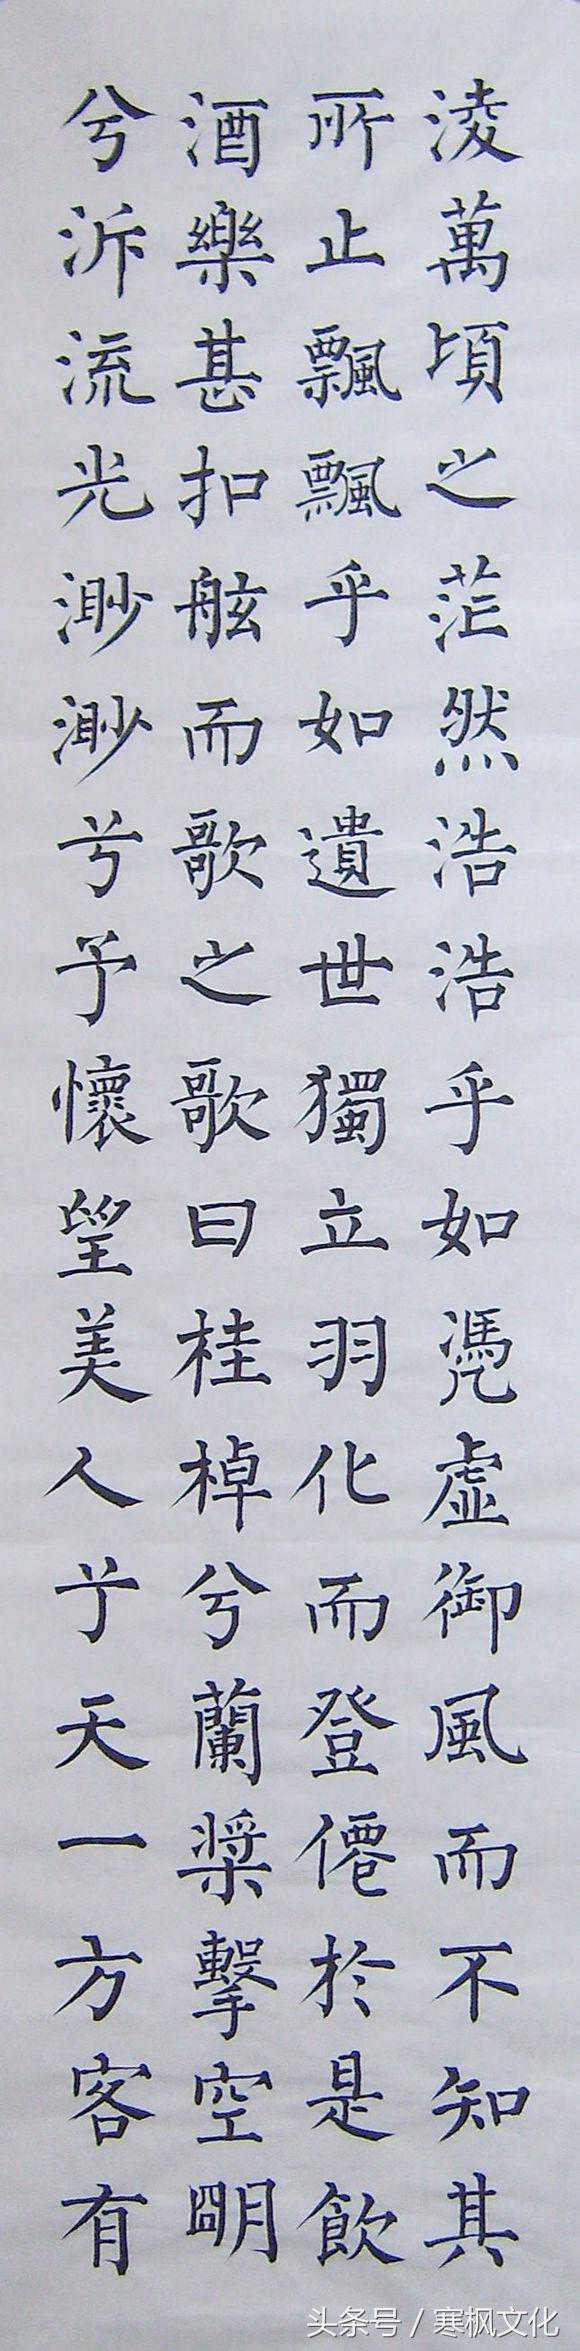 淩萬頃之茫然浩浩乎如馮虛御風而不知其
所止飄飄乎如遺世獨立羽化而登僊於是飲
酒樂甚扣舷而歌之歌曰桂棹兮蘭槳擊空朙
兮泝流光渺渺兮予懷望美人兮天一方客有
头条号 / 寒枫文化